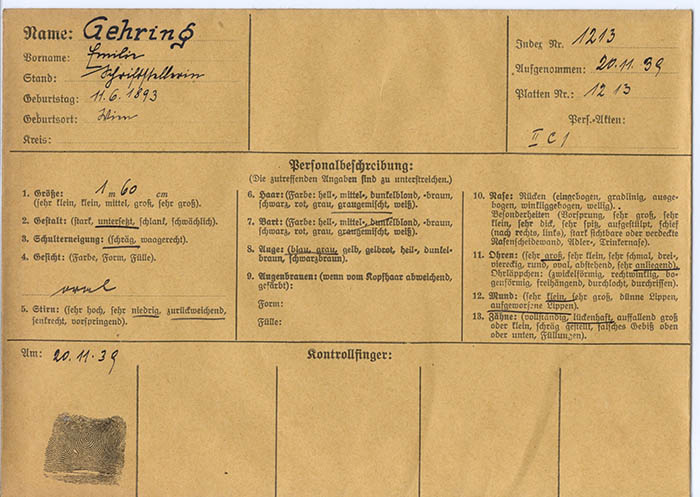 Name: Gehring
Vorname: Emilie
Stand: Schriftstellerin
Geburtstag: 11.6.1893
Geburtsort: Wien
Kreis:
Index Nr. 1213
Aufgenommen: 20.11.39
Platten Nr.: 1213
Pers.-Akten:
II C 1
Personalbeschreibung:
(Die zutreffenden Angaben sind zu unterstreichen.)
1. Größe: 1 m 60 cm
(sehr klein, klein, mittel, groß, sehr groß).
2. Gestalt: (stark, untersetzt, schlank, schwächlich).
3. Schulterneigung: (schräg, waagerecht).
4. Gesicht: (Farbe, Form, Fülle).
oval
5. Stirn: (sehr hoch, sehr niedrig, zurückweichend,
senkrecht, vorspringend).
6. Haar: (Farbe: hell-, mittel-, dunkelblond, -braun,
schwarz, rot, grau, graugemischt, weiß).
7. Bart: (Farbe: hell-, mittel-, dunkelblond, -braun,
schwarz, rot, grau, graugemischt, weiß).
8. Auge: (blau, grau, gelb, gelbrot, hell-, dunkel-
braun, schwarzbraun).
9. Augenbrauen: (wenn vom Kopfhaar abweichend,
gefärbt):
Form:
Fülle:
10. Nase: Rücken (eingebogen, gradlinig, ausge-
bogen, winkliggebogen, wellig).
Besonderheiten (Vorsprung, sehr groß, sehr
klein, sehr dick, sehr spitz, aufgestülpt, schief
(nach rechts, links), stark sichtbare oder verdeckte
Nasenscheidewand, Adler-, Trinkernase).
11. Ohren: (sehr groß, sehr klein, sehr schmal, drei-
viereckig, rund, oval, abstehend, sehr anliegend).
Ohrläppchen: (zwickelförmig, rechtwinklig, bo-
genförmig, freihängend, durchlocht, durchriffen).
12. Mund: (sehr klein, sehr groß, dünne Lippen,
aufgeworfene Lippen).
13. Zähne: (vollständig, lückenhaft, auffallend groß
oder klein, schräg gestellt, falsches Gebiß oben
oder unten, Füllungen).
Am: 20.11.39
Kontrollfinger: